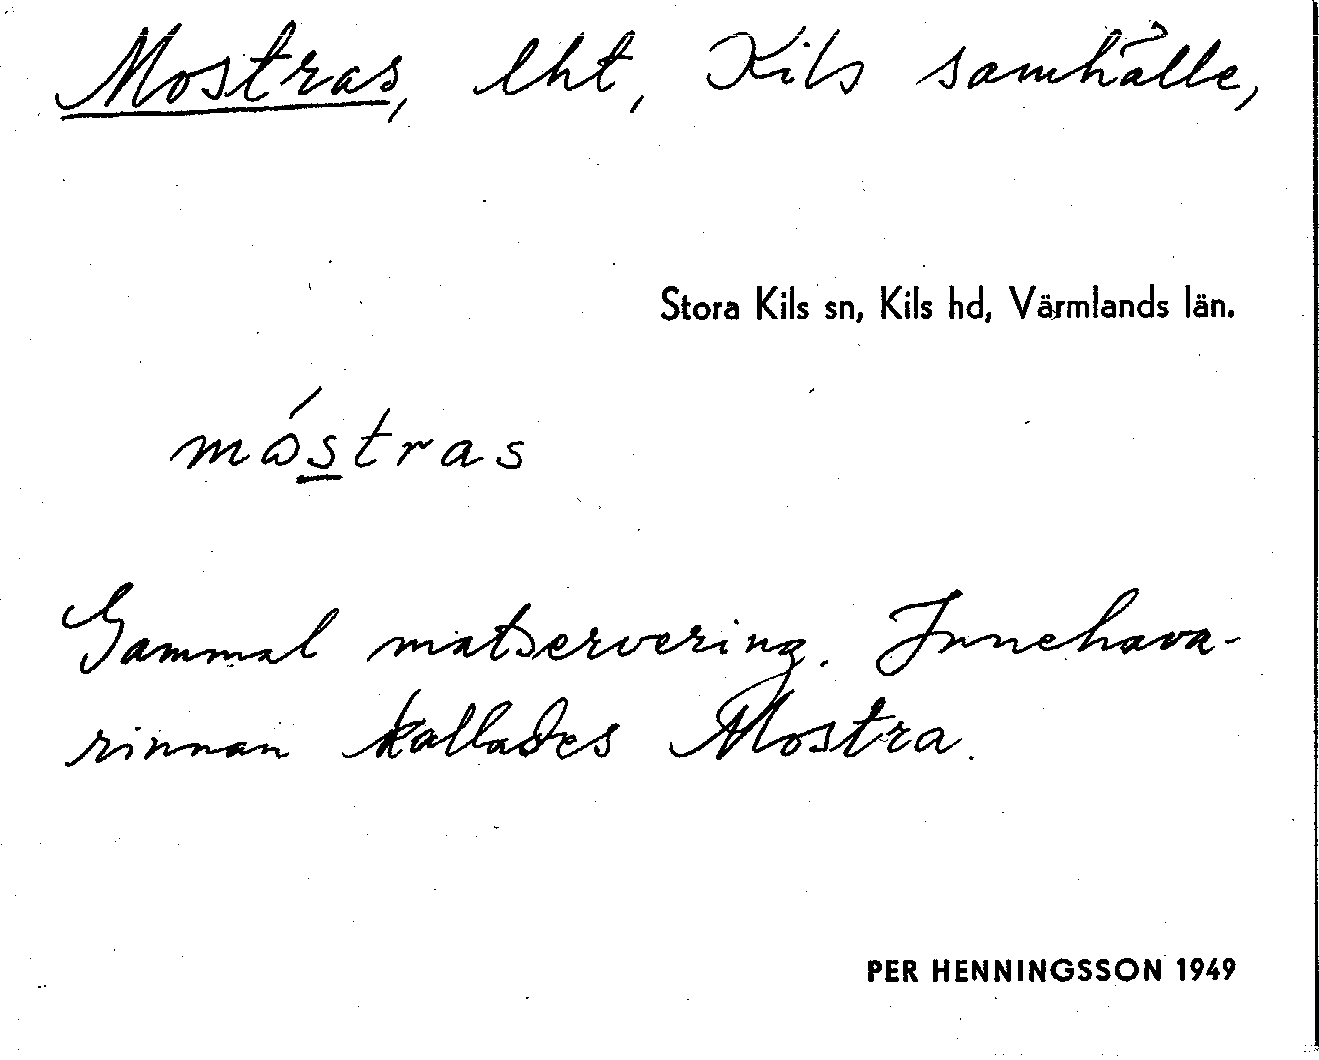 Mostras, lht, Kils samhälle,
Stora Kils sn, Kils hd, Värmlands län.
móstras
Gammal matservering. Innehava-
rinnan kallades Mostra.
PER HENNINGSSON 1949